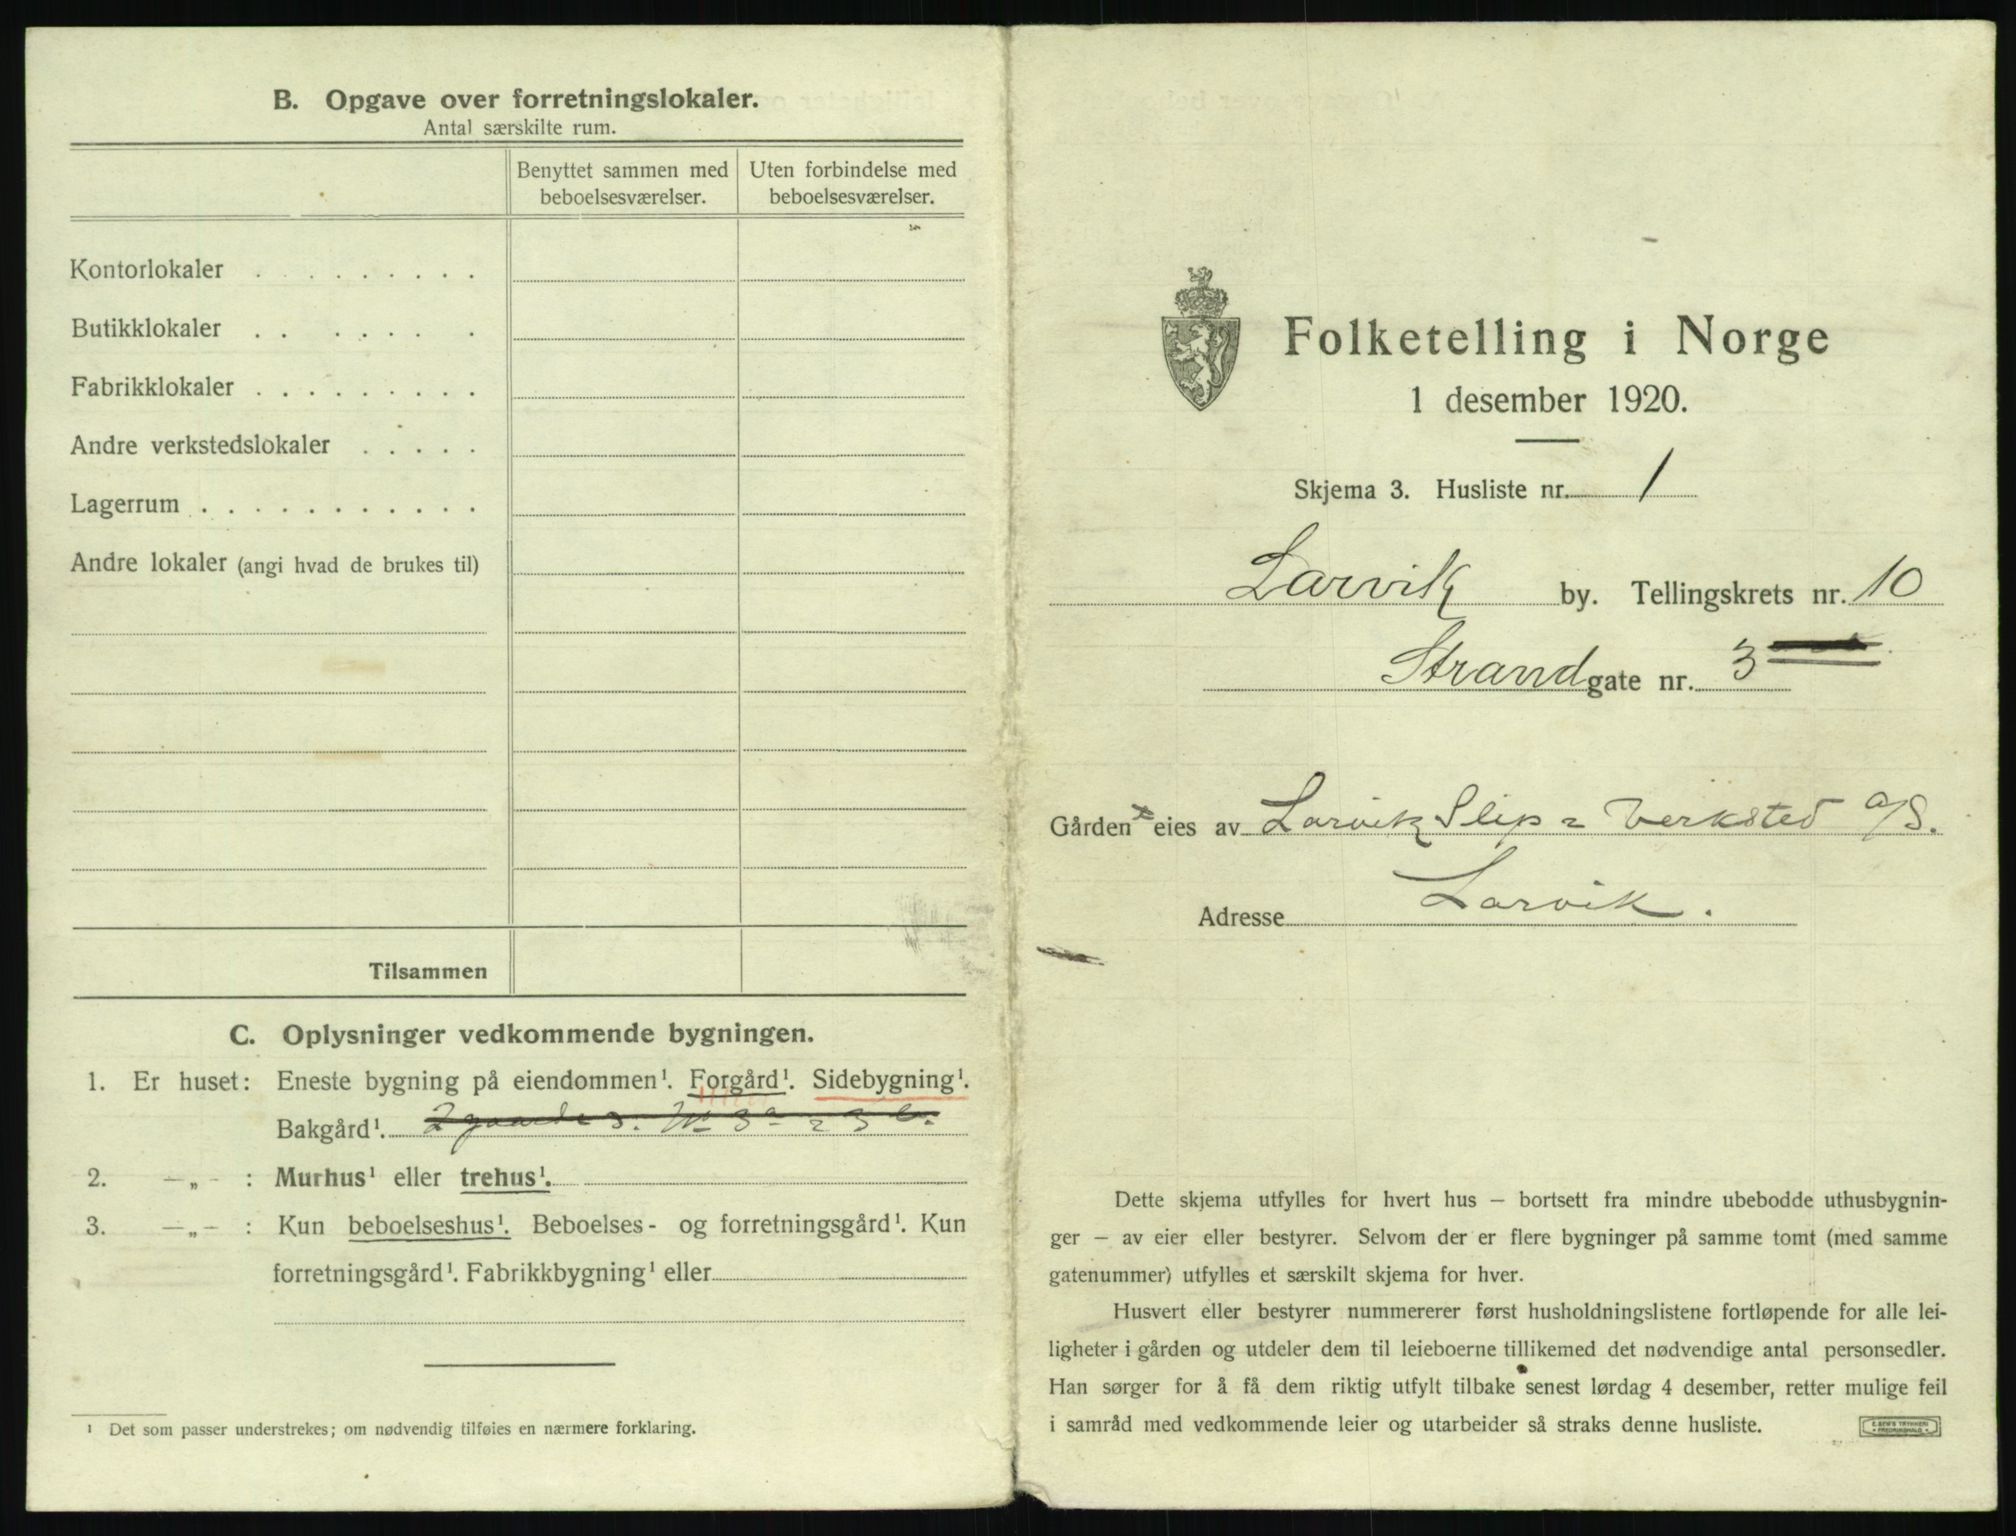 B. Opgave over forretningslokaler.
Antal særskilte rum.
Benyttet sammen med beboelsesværelser.
Uten forbindelse med beboelsesværelser.
Kontorlokaler . . . . . . . . .
Butikklokaler . . . . . . .
Fabrikklokaler . . . . . . . . .
Andre verkstedslokaler . . . . .
Lagerrum . . . . . . . . . . .
Andre lokaler (angi hvad de brukes til)
Tilsammen
C. Oplysninger vedkommende bygningen.
1. Er huset: Eneste bygning på eiendommen¹. Forgård¹. Sidebygning¹.
Bakgård¹. 2 gaarde
2. —„— : Murhus¹ eller trehus¹.
3. —„— : Kun beboelseshus¹. Beboelses- og forretningsgård¹. Kun
forretningsgård¹. Fabrikkbygning¹ eller
¹ Det som passer understrekes; om nødvendig tilføies en nærmere forklaring.
Folketelling i Norge
1 desember 1920.
Skjema 3. Husliste nr. 1
Larvik by. Tellingskrets nr. 10
Strandgate nr. 3
Gården eies av Larvik Slip & Verksted A/S.
Adresse Larvik.
Dette skjema utfylles for hvert hus — bortsett fra mindre ubebodde uthusbygnin-
ger — av eier eller bestyrer. Selvom der er flere bygninger på samme tomt (med samme
gatenummer) utfylles et særskilt skjema for hver.
Husvert eller bestyrer nummererer først husholdningslistene fortløpende for alle lei-
ligheter i gården og utdeler dem til leieboerne tillikemed det nødvendige antal personsedler.
Han sørger for å få dem riktig utfylt tilbake senest lørdag 4 desember, retter mulige feil
i samråd med vedkommende leier og utarbeider så straks denne husliste.